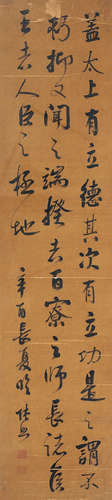 蓋太上有立德其次有立功是之謂不
朽抑又聞之端揆者百寮之師長諸侯
王者人臣之極地
辛酉長夏臨 張照